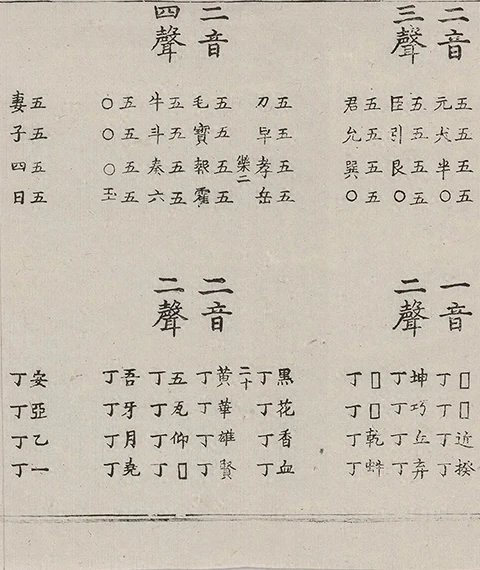 二音
三聲
五五五五
元犬半○
五五五五
臣引艮○
五五五五
君允巽○
二音
四聲
五五五五
刀早孝岳
樂二
五五五五
毛寶報霍
五五五五
牛斗奏六
五五五五
○○○玉
五五五五
妻子四日
一音
二聲
□□近揆
丁丁丁丁
坤巧丘弃
丁丁丁丁
□□乾虯
丁丁丁丁
二音
二聲
黑花香血
丁丁丁丁
二十
黃華雄賢
丁丁丁丁
五瓦仰□
丁丁丁丁
吾牙月堯
丁丁丁丁
安亞乙一
丁丁丁丁